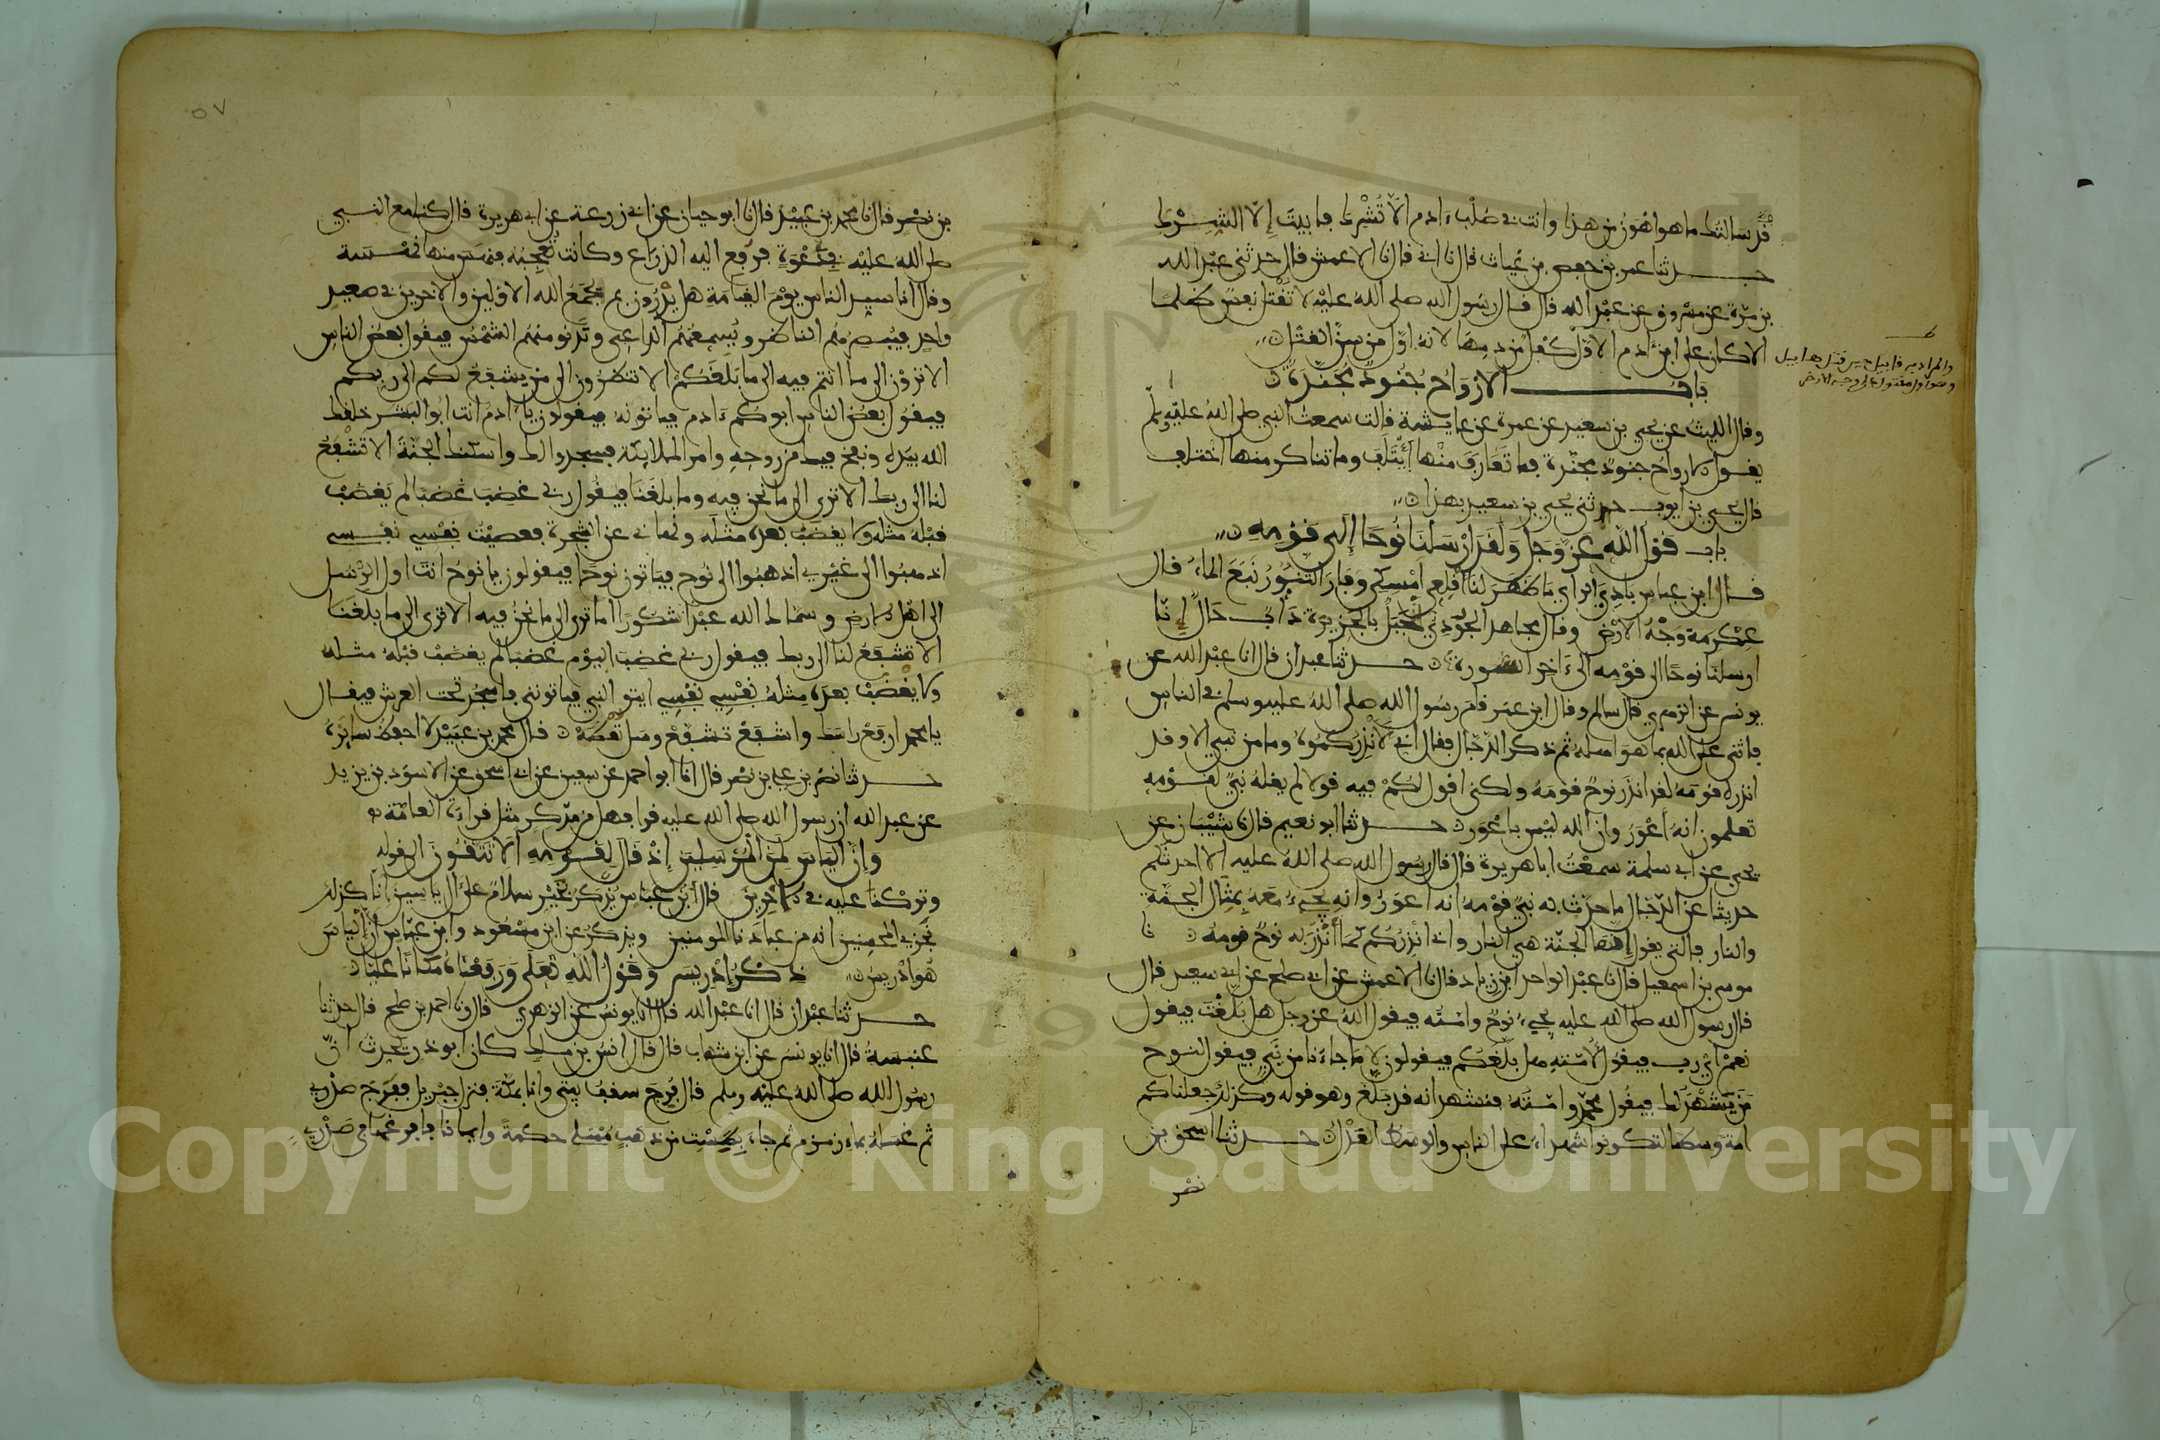 قد سالتك ما هو اهون من هذا وانت في صلب ءادم الا تشرك فابيت الا الشرك
حدثنا عمر بن حفص بن غياث قال نا ابي قال نا الاعمش قال حدثني عبد الله
بن مرة عن مسروق عن عبد الله قال قال رسول الله صلى الله عليه لا تقتل نفس ظلما
الا كان على ابن ءادم الاول كفل من دمها لانه اول من سن القتل
باب الارواح جنود مجندة
وقال الليث عن يحيى بن سعيد عن عمرة عن عايشة قالت سمعت النبي صلى الله عليه وسلم
يقول الارواح جنود مجندة فما تعارف منها ايتلف وما تناكر منها اختلف
قال يحيى بن ايوب حدثني يحيى بن سعيد بهذا
باب قول الله عز وجل ولقد ارسلنا نوحا الى قومه
قال ابن عباس بادي الراي ما ظهر لنا اقلعي امسكي وفار التنور نبع الماء وقال
عكرمة وجه الارض وقال مجاهد الجودي جبل بالجزيرة داب حال انا
ارسلنا نوحا الى قومه الى ءاخر السورة حدثنا عبدان قال انا عبد الله عن
يونس عن الزهري قال سالم وقال ابن عمر قام رسول الله صلى الله عليه وسلم في الناس
فاثنى على الله بما هو اهله ثم ذكر الدجال فقال اني لانذركموه وما من نبي الا وقد
انذره قومه لقد انذر نوح قومه ولكني اقول لكم فيه قولا لم يقله نبي لقومه
تعلمون انه اعور وان الله ليس باعور حدثنا ابو نعيم قال نا شيبان عن
يحيى عن ابي سلمة سمعت ابا هريرة قال قال رسول الله صلى الله عليه الا احدثكم
حديثا عن الدجال ما حدث به نبي قومه انه اعور وانه يجيء معه بمثال الجنة
والنار فالتي يقول انها الجنة هي النار واني انذركم كما انذر به نوح قومه نا
موسى بن اسمعيل قال نا عبد الواحد ابن زياد قال نا الاعمش عن ابي صلح عن ابي سعيد قال
قال رسول الله صلى الله عليه يجيء نوح وامته فيقول الله عز وجل هل بلغت فيقول
نعم اي رب فيقول لامته هل بلغكم فيقولون لا ما جاءنا من نبي فيقول لنوح
من يشهد لك فيقول محمد وامته فنشهد انه قد بلغ وهو قوله وكذلك جعلناكم
امة وسطا لتكونوا شهداء على الناس والوسط العدل حدثنا اسحق بن
نصر
والمراد به قابيل حين قتل هابيل
وهو اول مقتول على وجه الارض
٥٧
بن نصر قال نا محمد بن عبيد قال نا ابو حيان عن ابي زرعة عن ابي هريرة قال كنا مع النبي
صلى الله عليه في دعوة فرفع اليه الذراع وكانت تعجبه فنهس منها نهسة
وقال انا سيد الناس يوم القيامة هل تدرون بم يجمع الله الاولين والاخرين في صعيد
واحد فيبصرهم الناظر ويسمعهم الداعي وتدنو منهم الشمس فيقول بعض الناس
الا ترون الى ما انتم فيه الى ما بلغكم الا تنظرون الى من يشفع لكم الى ربكم
فيقول بعض الناس ابوكم ءادم فياتونه فيقولون يا ءادم انت ابو البشر خلقك
الله بيده ونفخ فيك من روحه وامر الملايكة فسجدوا لك واسكنك الجنة الا تشفع
لنا الى ربك الا ترى الى ما نحن فيه وما بلغنا فيقول ربي غضب غضبا لم يغضب
قبله مثله ولا يغضب بعده مثله ونهاني عن الشجرة فعصيت نفسي نفسي
اذهبوا الى غيري اذهبوا الى نوح فياتون نوحا فيقولون يا نوح انت اول الرسل
الى اهل الارض وسماك الله عبدا شكورا اما ترى الى ما نحن فيه الا ترى الى ما بلغنا
الا تشفع لنا الى ربك فيقول ربي غضب اليوم غضبا لم يغضب قبله مثله
ولا يغضب بعده مثله نفسي نفسي ايتوا النبي فياتوني فاسجد تحت العرش فيقال
يا محمد ارفع راسك واشفع تشفع وسل تعطه قال محمد بن عبيد لا احفظ سايره
حدثنا نصر بن علي بن نصر قال انا ابو احمد عن سفين عن ابي اسحق عن الاسود بن يزيد
عن عبد الله ان رسول الله صلى الله عليه قرا فهل من مدكر مثل قراءة العامة
وان الياس لمن المرسلين اذ قال لقومه الا تتقون الى قوله
وتركنا عليه في الاخرين قال ابن عباس يذكر بخير سلام على ال ياسين انا كذلك
نجزي المحسنين انه من عبادنا المومنين ويذكر عن ابن مسعود وابن عباس ان الياس
هو ادريس ذكر ادريس وقول الله تعلى ورفعناه مكانا عليا
حدثنا عبدان قال انا عبد الله قال انا يونس عن الزهري قال ونا احمد بن صلح قال حدثنا
عنبسة قال نا يونس عن ابن شهاب قال قال انس بن ملك كان ابو ذر يحدث ان
رسول الله صلى الله عليه وسلم قال فرج سقف بيتي وانا بمكة فنزل جبريل ففرج صدري
ثم غسله بماء زمزم ثم جاء بطست من ذهب ممتلئ حكمة وايمانا فافرغها في صدري
Copyright © King Saud University